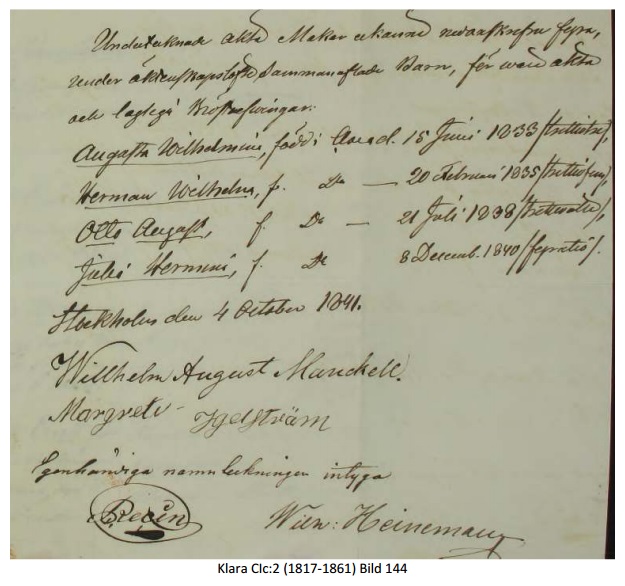 Undertecknade äkta Makar erkänna nedanskrefne fyra,
under äktenskapslöfte Sammanaflade Barn, för wåra äkta
och lagliga Bröstarfvingar:
Augusta Wilhelmina, född i 15 Juni 1833 /trettitre/,
Herman Wilhelm, f. Do — 20 Februari 1835 /trettiofem/,
Otto August, f. Do — 21 Juli 1838 /trettioåtta/,
Julie Hermine, f. Do 8 Decemb. 1840 /fyratio/.
Stockholm den 4 October 1841.
Willhelm August Manckell.
Margreta Igelström
Egenhändiga namnteckningen intyga
Heineman
Klara CIc:2 (1817-1861) Bild 144